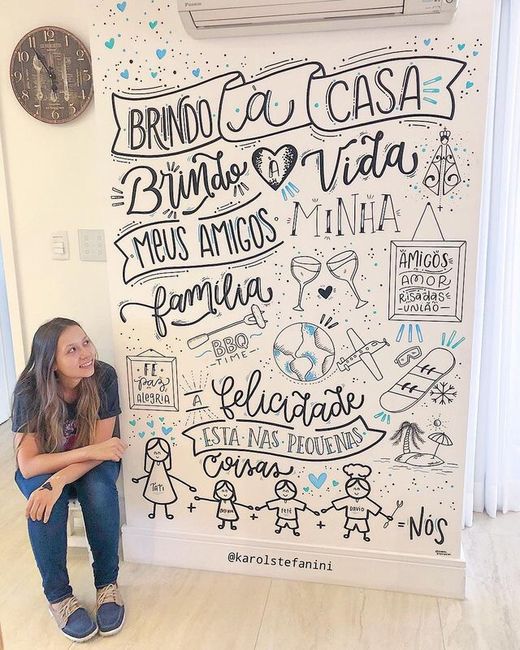 BRINDO à CASA
Brindo À Vida
MEUS AMIGOS
MINHA
família
AMIGOS
AMOR
RISADAS
UNIÃO
BBQ
TIME
FÉ
paz
ALEGRIA
A felicidade
ESTÁ NAS PEQUENAS
Coisas
TATI
DAVID
+ + + = NÓS
@karolstefanini